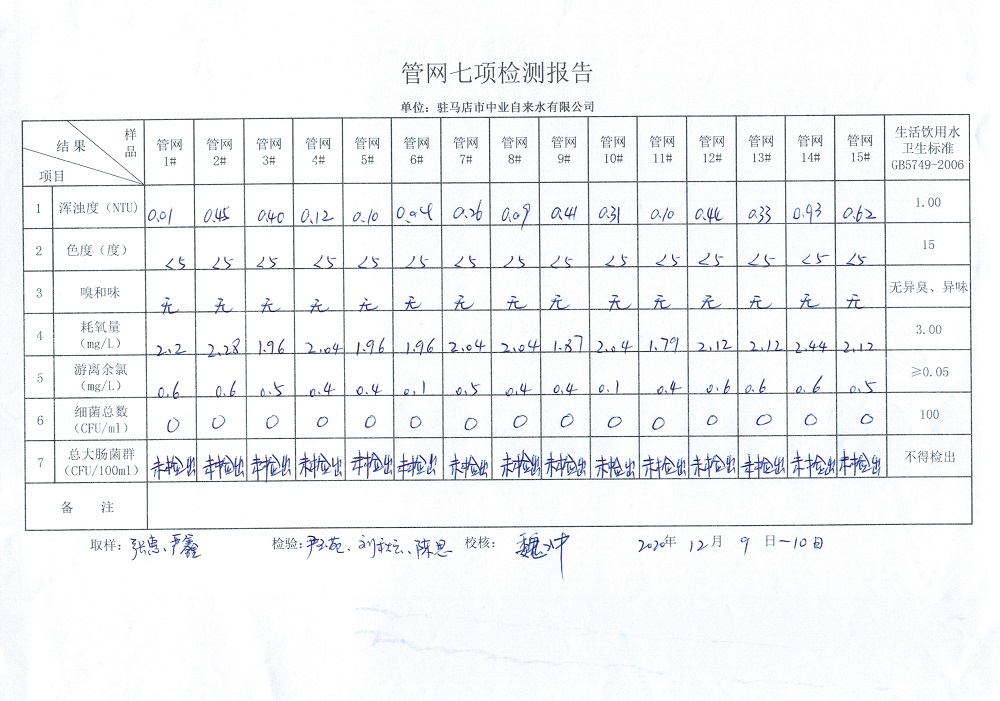 管网七项检测报告
单位：驻马店市中业自来水有限公司
样品 结果 项目 管网1# 管网2# 管网3# 管网4# 管网5# 管网6# 管网7# 管网8# 管网9# 管网10# 管网11# 管网12# 管网13# 管网14# 管网15# 生活饮用水卫生标准GB5749-2006
1 浑浊度（NTU) 0.01 0.45 0.40 0.12 0.10 0.04 0.26 0.09 0.41 0.31 0.10 0.44 0.33 0.93 0.62 1.00
2 色度（度） <5 <5 <5 <5 <5 <5 <5 <5 <5 <5 <5 <5 <5 <5 <5 15
3 嗅和味 无 无 无 无 无 无 无 无 无 无 无 无 无 无 无 无异臭、异味
4 耗氧量（mg/L） 2.2 2.28 1.96 2.04 1.96 1.96 2.04 2.04 1.87 2.04 1.79 2.12 2.12 2.44 2.12 3.00
5 游离余氯（mg/L） 0.6 0.6 0.5 0.4 0.4 0.1 0.5 0.4 0.4 0.1 0.4 0.6 0.6 0.6 0.5 ≥0.05
6 细菌总数（CFU/ml） 0 0 0 0 0 0 0 0 0 0 0 0 0 0 0 100
7 总大肠菌群（CFU/100ml） 未检出 未检出 未检出 未检出 未检出 未检出 未检出 未检出 未检出 未检出 未检出 未检出 未检出 未检出 未检出 不得检出
备 注
取样：张惠、严鑫 检验： 陈思 校核： 魏 2020年 12月 9 日－10日